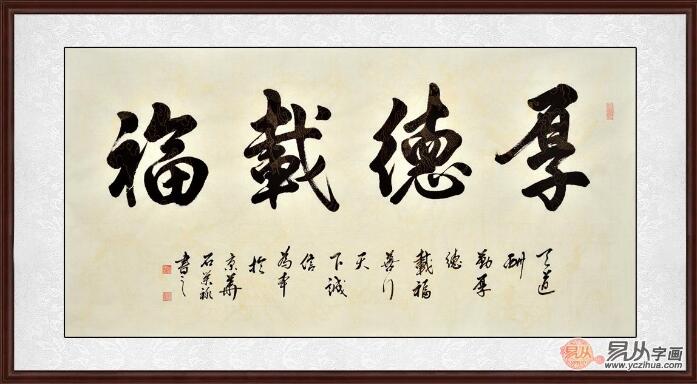 厚德載福
天道
酬
勤厚
德
載福
善行
天
下誠
信
為本
於
京華
石荣禄
書之
易从
易从字画
www.yczihua.com